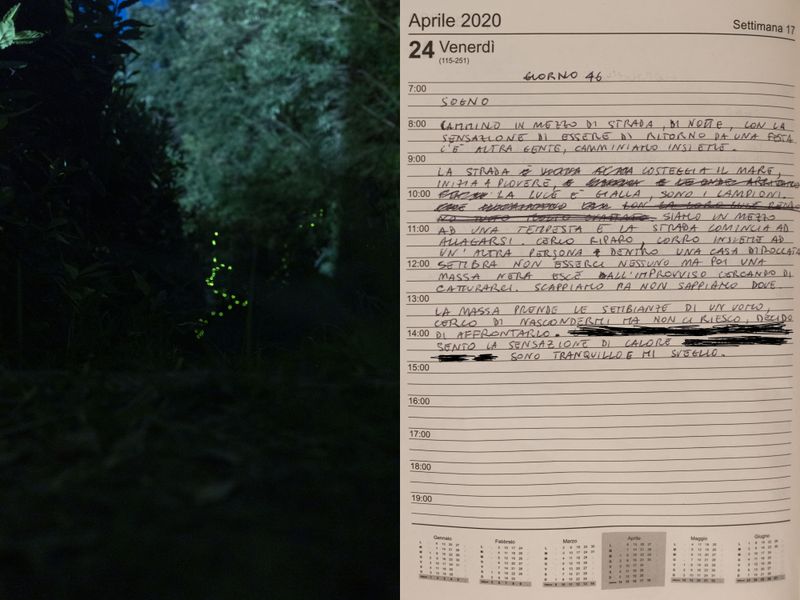 Aprile 2020
Settimana 17
24 Venerdì
(115-251)
GIORNO 46
7:00
SOGNO
8:00
CAMMINO IN MEZZO DI STRADA, DI NOTTE, CON LA
SENSAZIONE DI ESSERE DI RITORNO DA UNA FESTA
C'È ALTRA GENTE, CAMMINIAMO INSIEME.
9:00
LA STRADA COSTEGGIA IL MARE,
INIZIA A PIOVERE,
10:00
LA LUCE È GIALLA, SONO I LAMPIONI.
SIAMO IN MEZZO
11:00
AD UNA TEMPESTA E LA STRADA COMINCIA AD
ALLAGARSI. CERCO RIPARO, CORRO INSIEME AD
UN'ALTRA PERSONA DENTRO UNA CASA DIROCCATA
12:00
SEMBRA NON ESSERCI NESSUNO MA POI UNA
MASSA NERA ESCE DALL'IMPROVVISO CERCANDO DI
CATTURARCI. SCAPPIAMO MA NON SAPPIAMO DOVE.
13:00
LA MASSA PRENDE LE SEMBIANZE DI UN UOMO,
CERCO DI NASCONDERMI MA NON CI RIESCO, DECIDO
14:00
DI AFFRONTARLO.
SENTO LA SENSAZIONE DI CALORE
SONO TRANQUILLO E MI SVEGLIO.
15:00
16:00
17:00
18:00
19:00
Gennaio
Febbraio
Marzo
Aprile
Maggio
Giugno